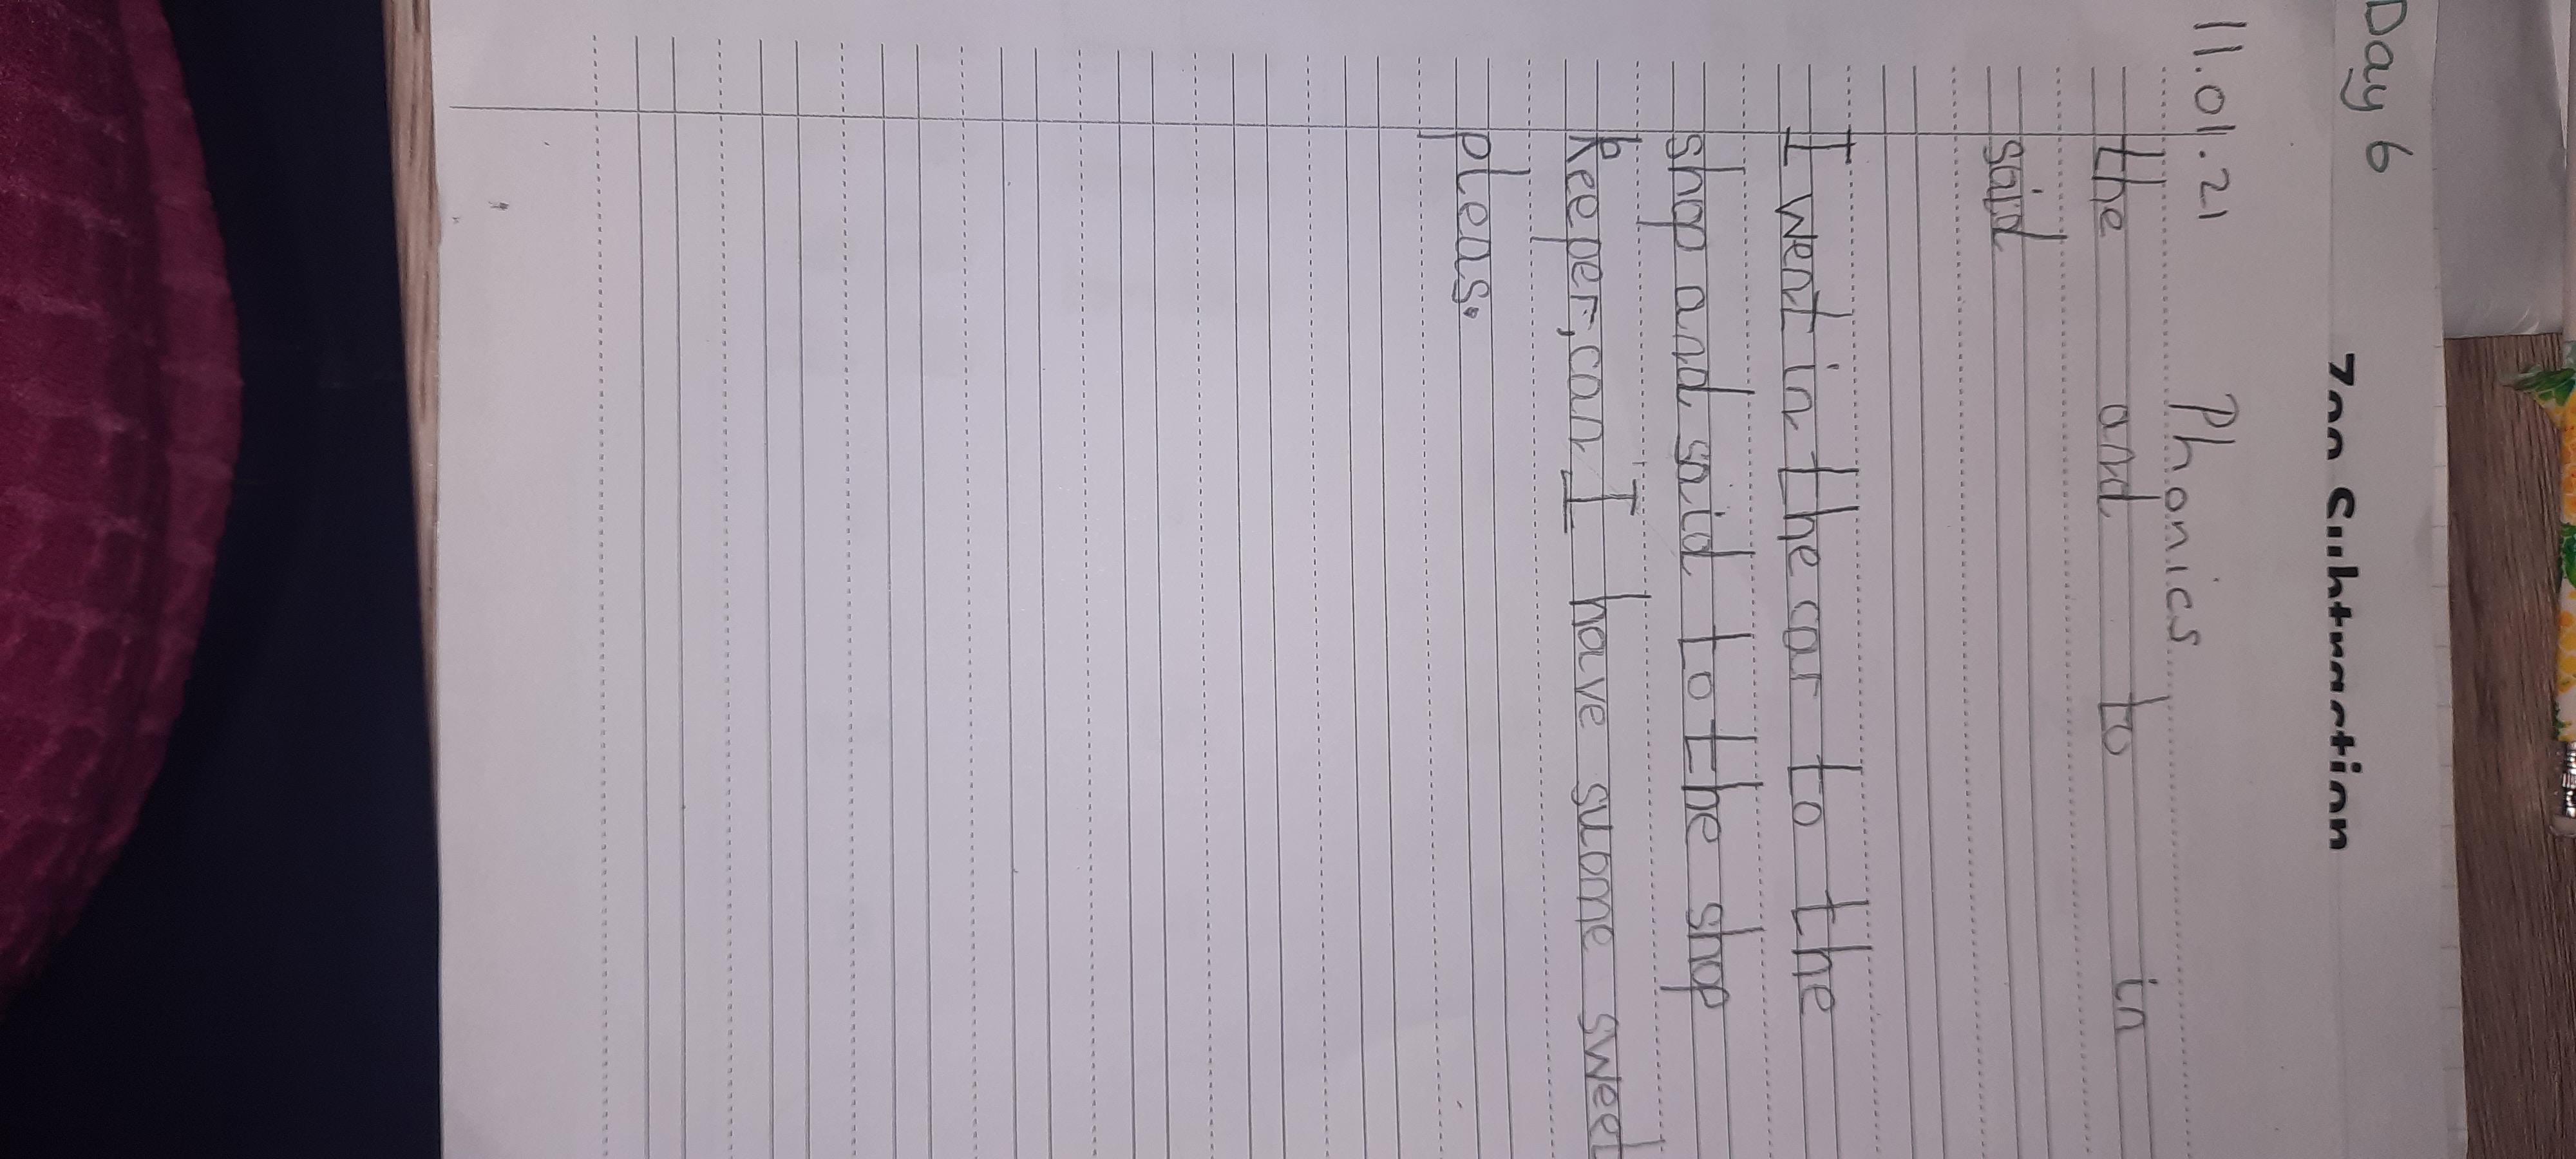 Day 6
Zoo Subtraction
11.01.21 Phonics
the and to in
said
I went in the car to the
shop and said to the shop
keeper, can I have subme sweet
pleas.